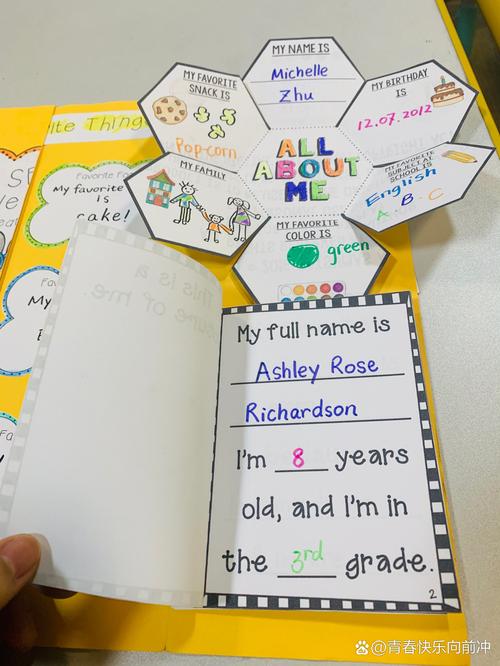 MY NAME IS
Michelle
Zhu
MY FAVORITE
SNACK IS
Pop-corn
MY BIRTHDAY
IS
12.07.2012
ALL
ABOUT
ME
MY FAMILY
MY FAVORITE
SUBJECT AT
SCHOOL IS
English
A B C
MY FAVORITE
COLOR IS
green
Things
Favorite
My favorite
is
cake!
My
My full name is
Ashley Rose
Richardson
I'm 8 years
old, and I'm in
the 3rd grade.
2
This is a
of me.
@青春快乐向前冲